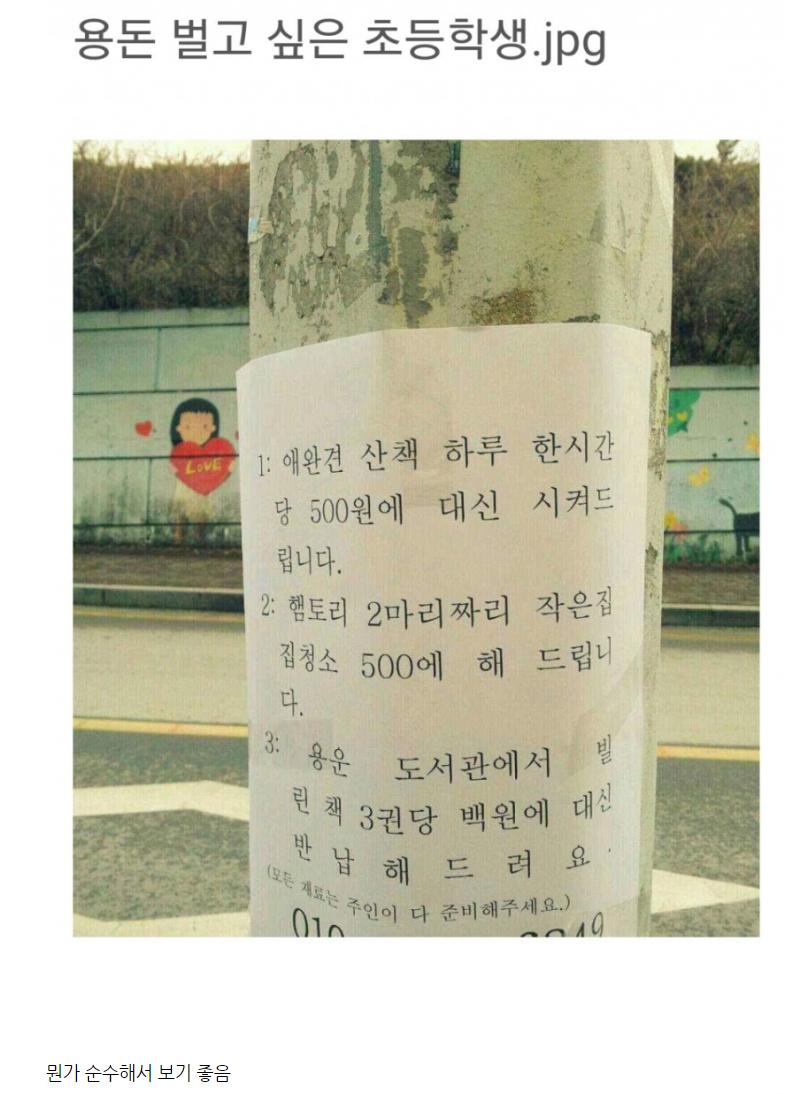 용돈 벌고 싶은 초등학생.jpg
LOVE
1: 애완견 산책 하루 한시간
당 500원에 대신 시켜드
립니다.
2: 햄토리 2마리짜리 작은집
집청소 500에 해 드립니
다.
3: 용운 도서관에서 빌
린 책 3권당 백원에 대신
반 납 해 드 려 요 .
(모든 재료는 주인이 다 준비해주세요.)
010
뭔가 순수해서 보기 좋음